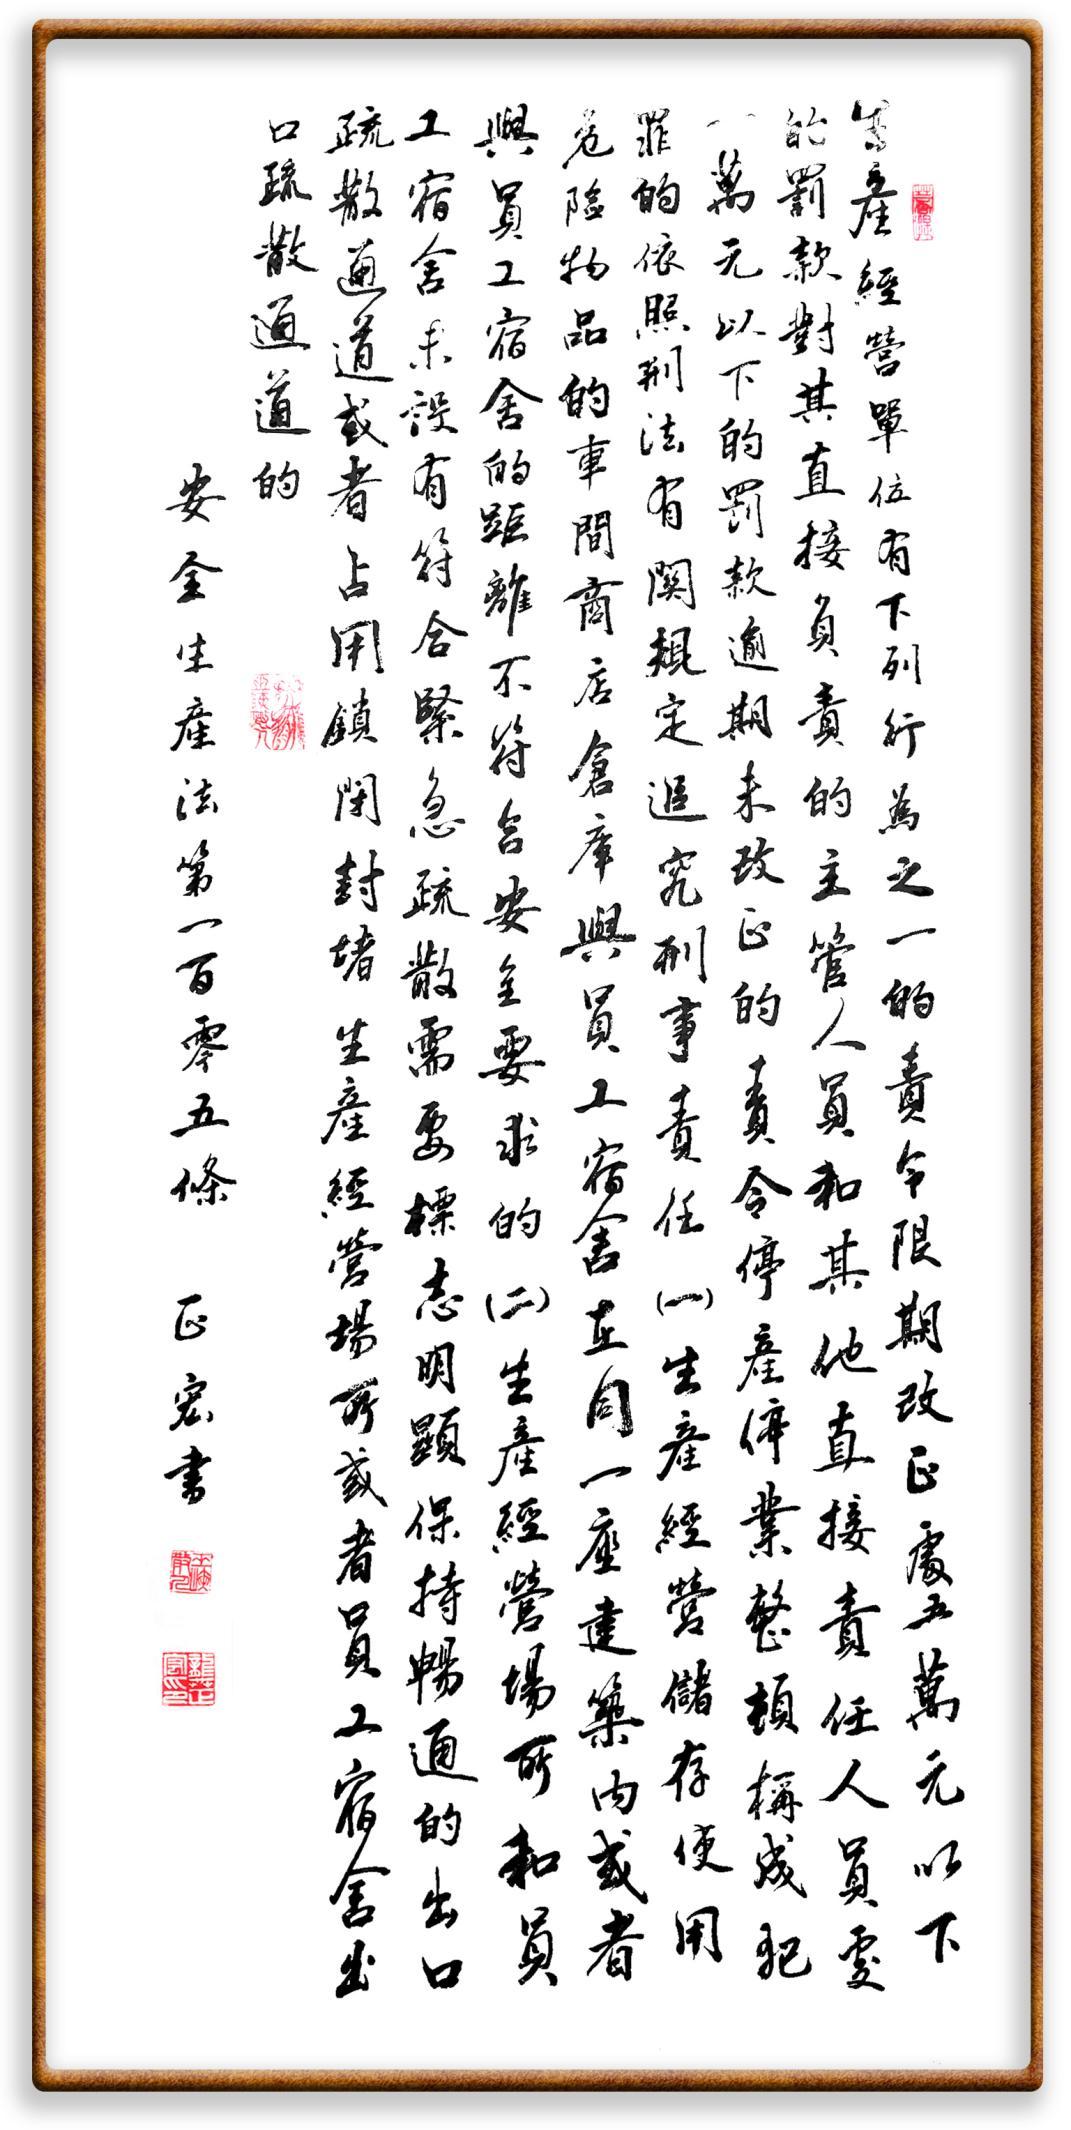 生產經營單位有下列行為之一的責令限期改正處五萬元以下
的罰款對其直接負責的主管人員和其他直接責任人員處
一萬元以下的罰款逾期未改正的責令停產停業整頓構成犯
罪的依照刑法有関規定追究刑事責任(一)生產經營儲存使用
危險物品的車間商店倉庫與員工宿舍在同一座建築内或者
與員工宿舍的距離不符合安全要求的(二)生產經營場所和員
工宿舍未設有符合緊急疏散需要標志明顯保持暢通的出口
疏散通道或者占用鎖閉封堵生產經營場所或者員工宿舍出
口疏散通道的
安全生產法第一百零五條 正宏书